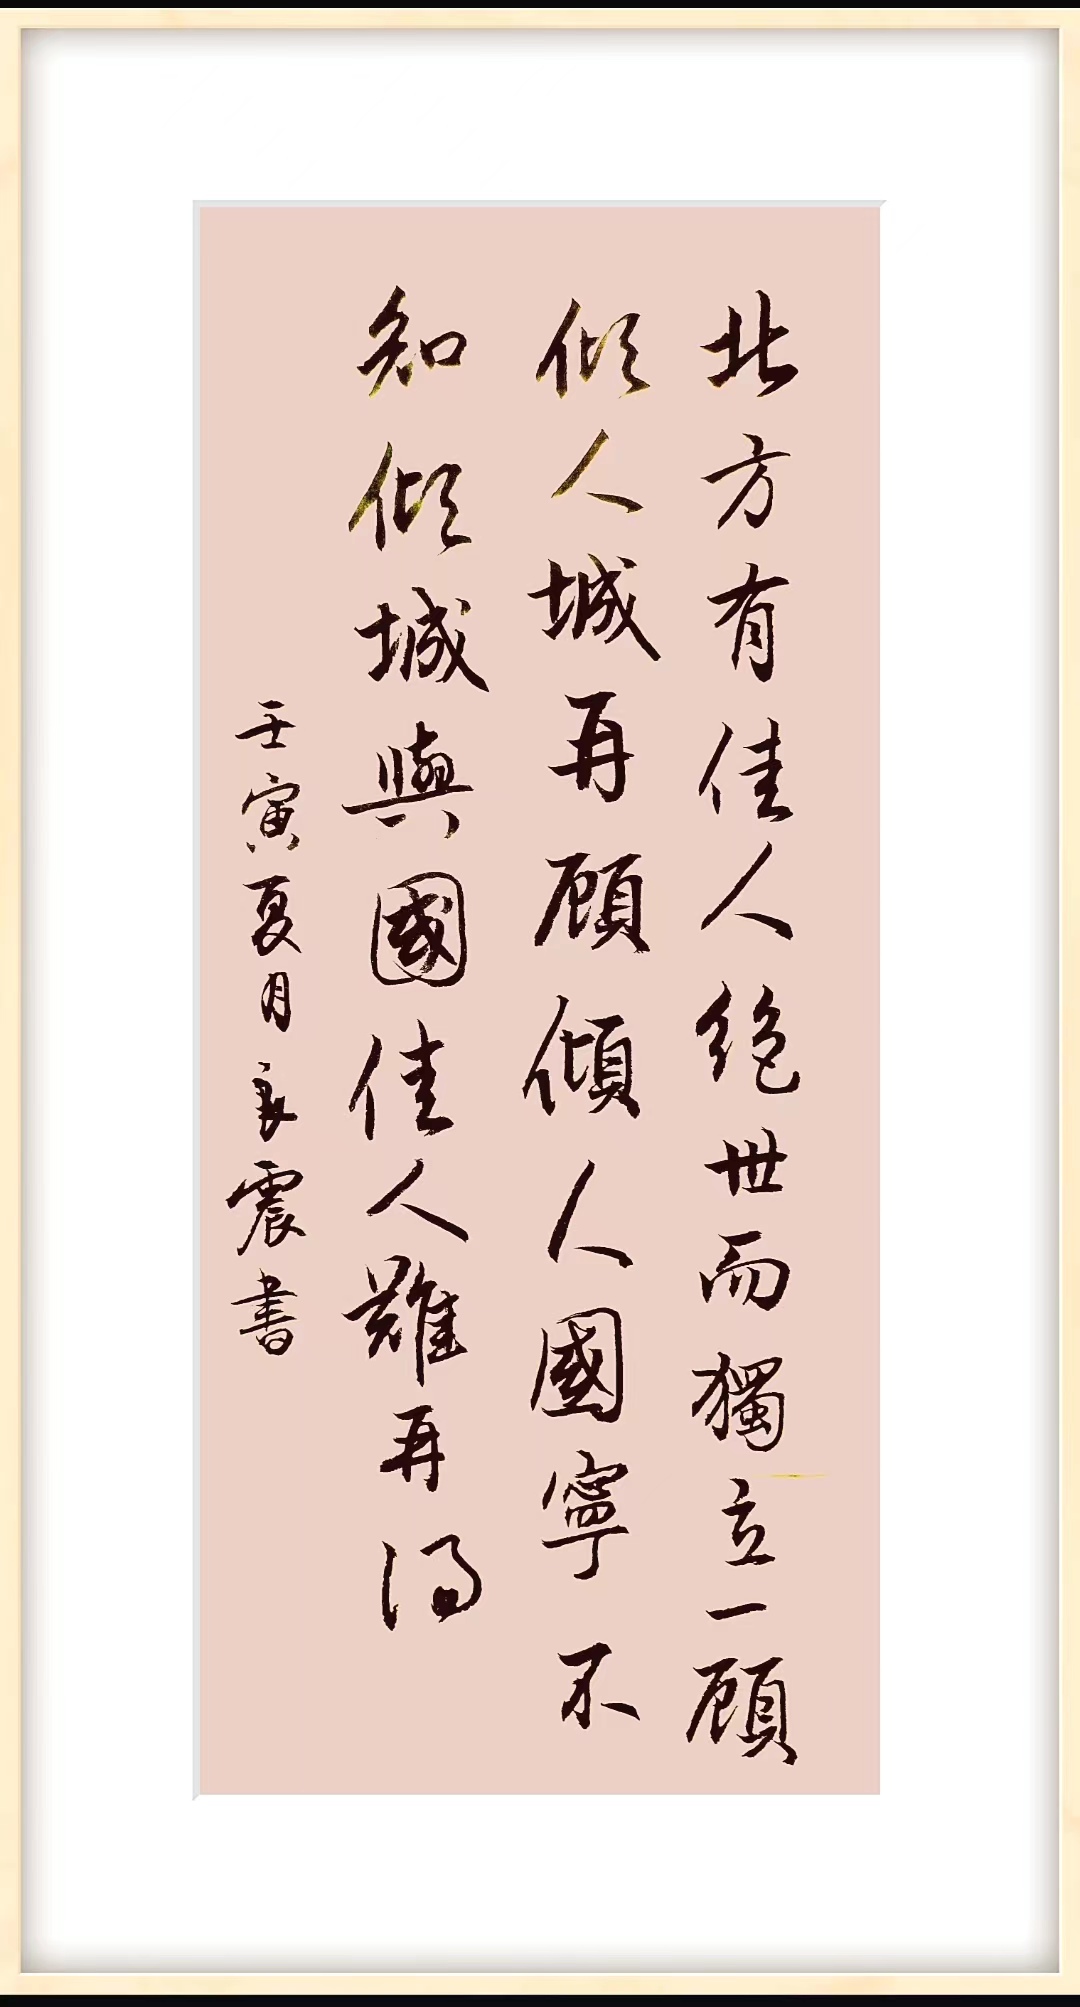 北方有佳人絕世而獨立一顾
倾人城再顾傾人國寧不
知倾城與國佳人難再得
壬寅夏月良震書